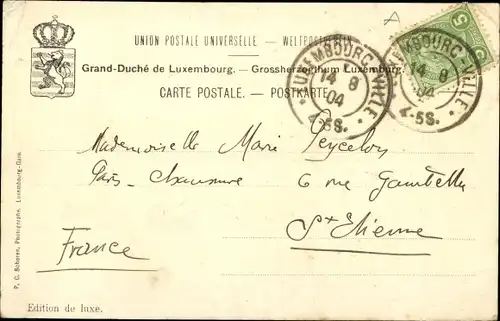 UNION POSTALE UNIVERSELLE. — WELTPOSTVEREIN
Grand-Duché de Luxembourg. — Grossherzogthum Luxemburg.
CARTE POSTALE. — POSTKARTE
LUXEMBOURG-VILLE
14 8
04
4-5S.
LUXEMBOURG-VILLE
14 8
04
4-5S.
5
Mademoiselle Marie Peycelon
Paris-Chaussure 6 rue Gambetta
St Etienne
France
P. C. Schoren, Photographe, Luxembourg-Gare.
Edition de luxe.